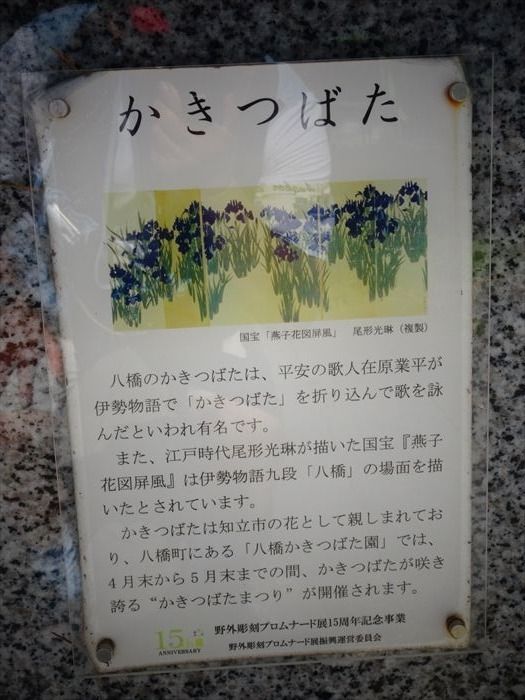 かきつばた
国宝「燕子花図屏風」 尾形光琳(複製)
八橋のかきつばたは、平安の歌人在原業平が
伊勢物語で「かきつばた」を折り込んで歌を詠
んだといわれ有名です。
また、江戸時代尾形光琳が描いた国宝『燕子
花図屏風』は伊勢物語九段「八橋」の場面を描
いたとされています。
かきつばたは知立市の花として親しまれてお
り、八橋町にある「八橋かきつばた園」では、
4月末から5月末までの間、かきつばたが咲き
誇る“かきつばたまつり”が開催されます。
15
ANNIVERSARY
野外彫刻プロムナード展15周年記念事業
野外彫刻プロムナード展振興運営委員会